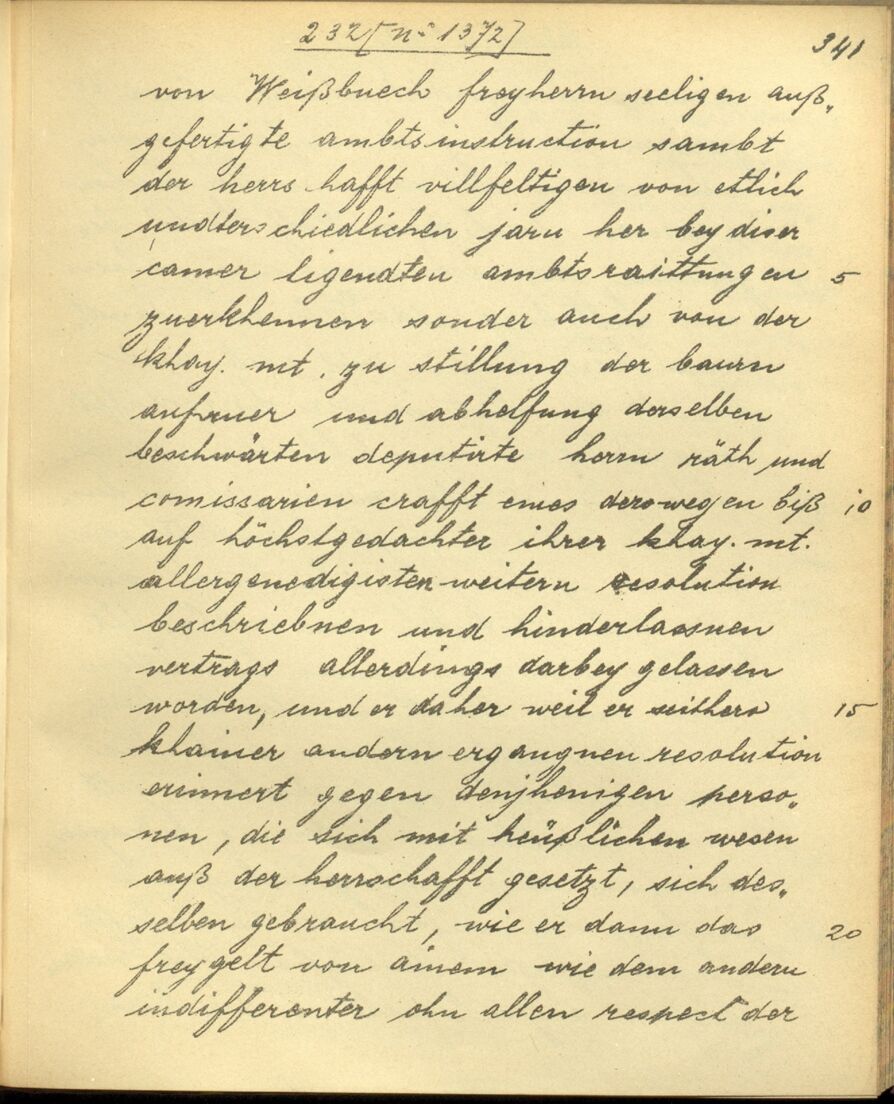 232 [nº 1372]
341
von Weißbuech freyherrn seeligen auß„
gefertigte ambtsinstruction sambt
der herrschafft villfeltigen von etlich
undterschiedlichen jarn her bey diser
camer ligendten ambtsraittungen 5
zuerkhennen sonder auch von der
khay. mt. zu stillung der baurn
aufruer und abhelfung derselben
beschwärten deputirte herrn räth und
comissarien crafft eines derowegen biß 10
auf höchstgedachter ihrer khay. mt.
allergenedigisten weitern resolution
beschriebnen und hinderlassnen
vertrags allerdings darbey gelassen
worden, und er daher weil er seithero 15
khainer andern ergangnen resolution
erinnert gegen denjhenigen perso„
nen, die sich mit heüßlichen wesen
auß der herrschafft gesetzt, sich des„
selben gebraucht, wie er dann das 20
freygelt von ainem wie dem andern
indifferenter ohn allen respect der